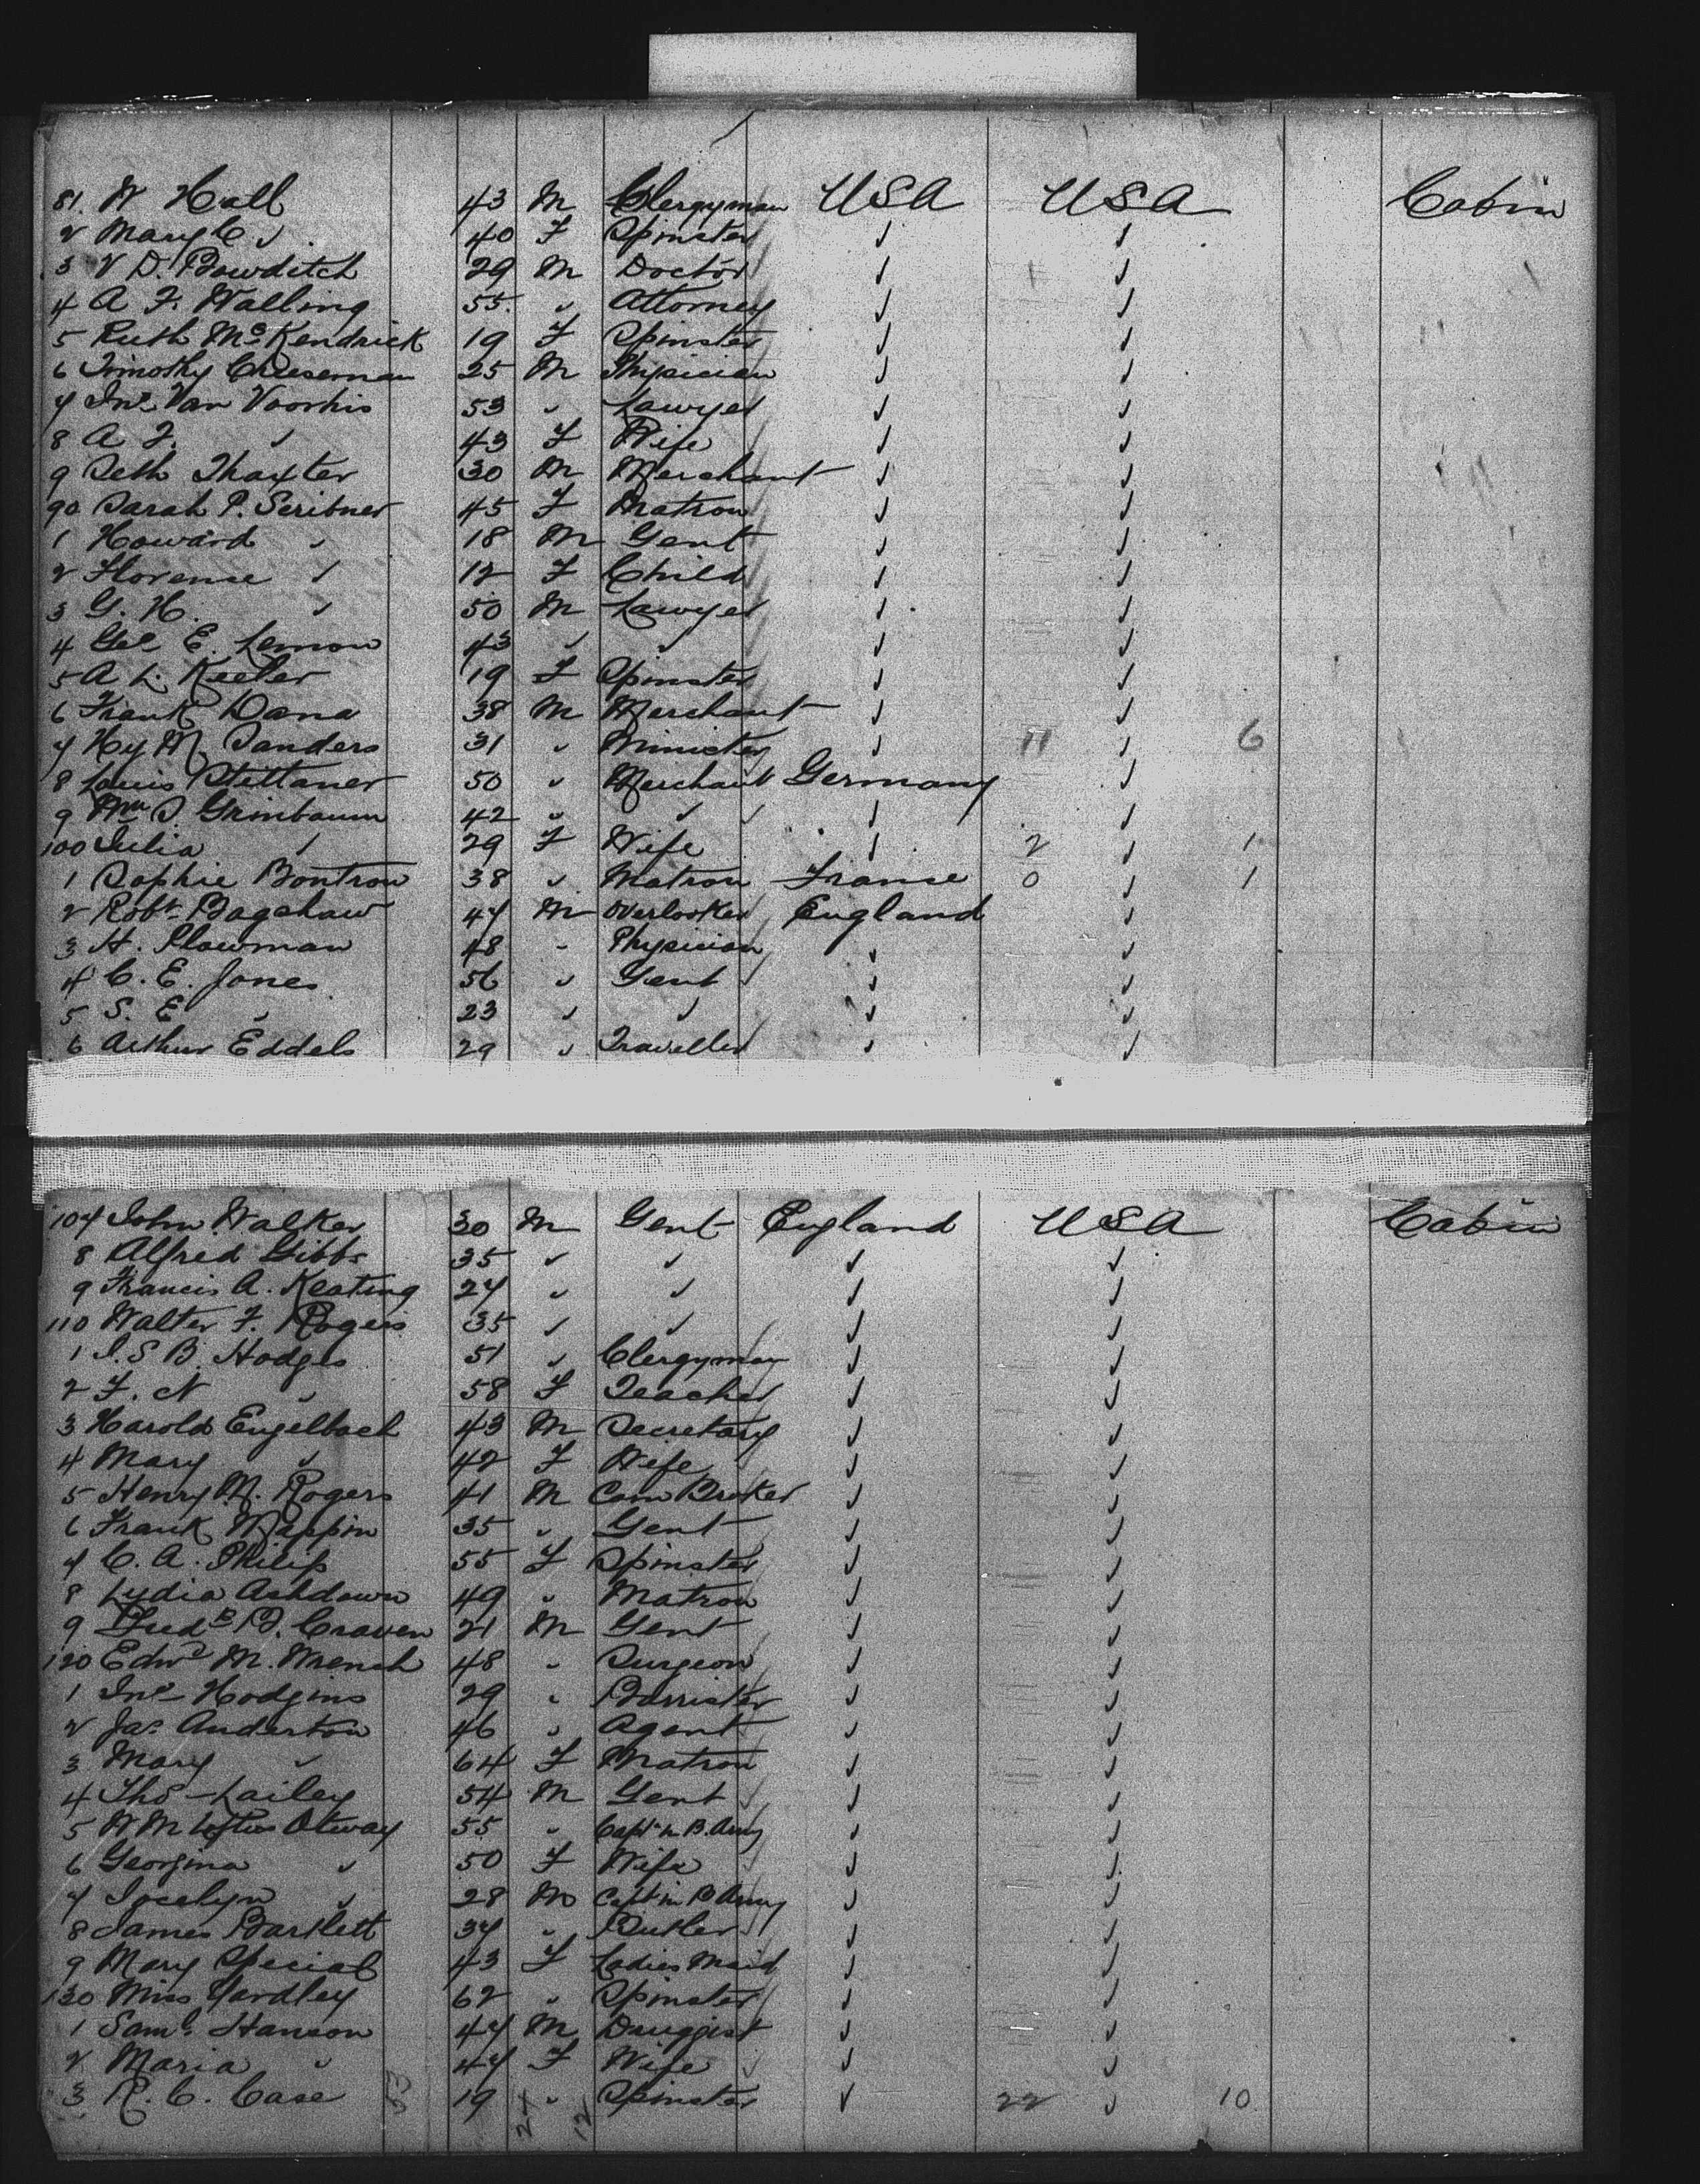 81. W Hall 43 M Clergyman USA USA Cabin
2 Mary C " 40 F Spinster " "
3 V D. Bowditch 29 M Doctor " "
4 A F. Walling 55 " Attorney " "
5 Ruth McKendrick 19 F Spinster " "
6 Timothy Cheeseman 25 M Physician " "
7 Jno Van Voorhis 53 " Lawyer " "
8 A F. " 43 F Wife " "
9 Seth Thaxter 30 M Merchant " "
90 Sarah P. Scribner 45 F Matron " "
1 Howard " 18 M Gent " "
2 Florence " 12 F Child " "
3 G. H. " 50 M Lawyer " "
4 Geo E. Lemon 43 " " " "
5 A L. Keeler 19 F Spinster " "
6 Frank Dana 38 M Merchant " "
7 Hy M. Sanders 31 " Minister " 11 " 6
8 Louis Stettaner 50 " Merchant Germany "
9 Wm S Grinbaum 42 " " " "
100 Julia " 29 F Wife " 2 " 1
1 Sophie Bontron 38 " Matron France 0 " 1
2 Robt Bagshaw 47 M Overlooker England "
3 H. Plowman 48 " Physician " "
4 C. E. Jones 56 " Gent " "
5 S. E " 23 " " " "
6 Arthur Eddels 29 " Traveller " "
107 John Walker 30 M Gent England USA Cabin
8 Alfred Gibbs 35 " " " "
9 Francis A. Keating 27 " " " "
110 Walter F. Rogers 35 " " " "
1 J. S B. Hodges 51 " Clergyman " "
2 F. N " 58 F Teacher " "
3 Harold Engelbach 43 M Secretary " "
4 Mary " 42 F Wife " "
5 Henry M. Rogers 41 M Com Broker " "
6 Frank Mappin 35 " Gent " "
7 C. A. Philip 55 F Spinster " "
8 Lydia Ashdown 49 " Matron " "
9 Fredk B. Craven 21 M Gent " "
120 Edwd M. Wrench 48 " Surgeon " "
1 Jno Hodgins 29 " Barrister " "
2 Jas Anderton 46 " Agent " "
3 Mary " 64 F Matron " "
4 Tho Lailey 54 M Gent " "
5 W M Loftus Otway 55 " Capt in B. Army " "
6 Georgina " 50 F Wife " "
7 Jocelyn " 28 M Capt in B Army " "
8 James Bartlett 37 " Butler " "
9 Mary Special 43 F Ladies Maid " "
130 Miss Yardley 62 " Spinster " "
1 Saml Hanson 47 M Druggist " "
2 Maria " 47 F Wife " "
3 R. C. Case 19 " Spinster " 22 " 10
53 27 12